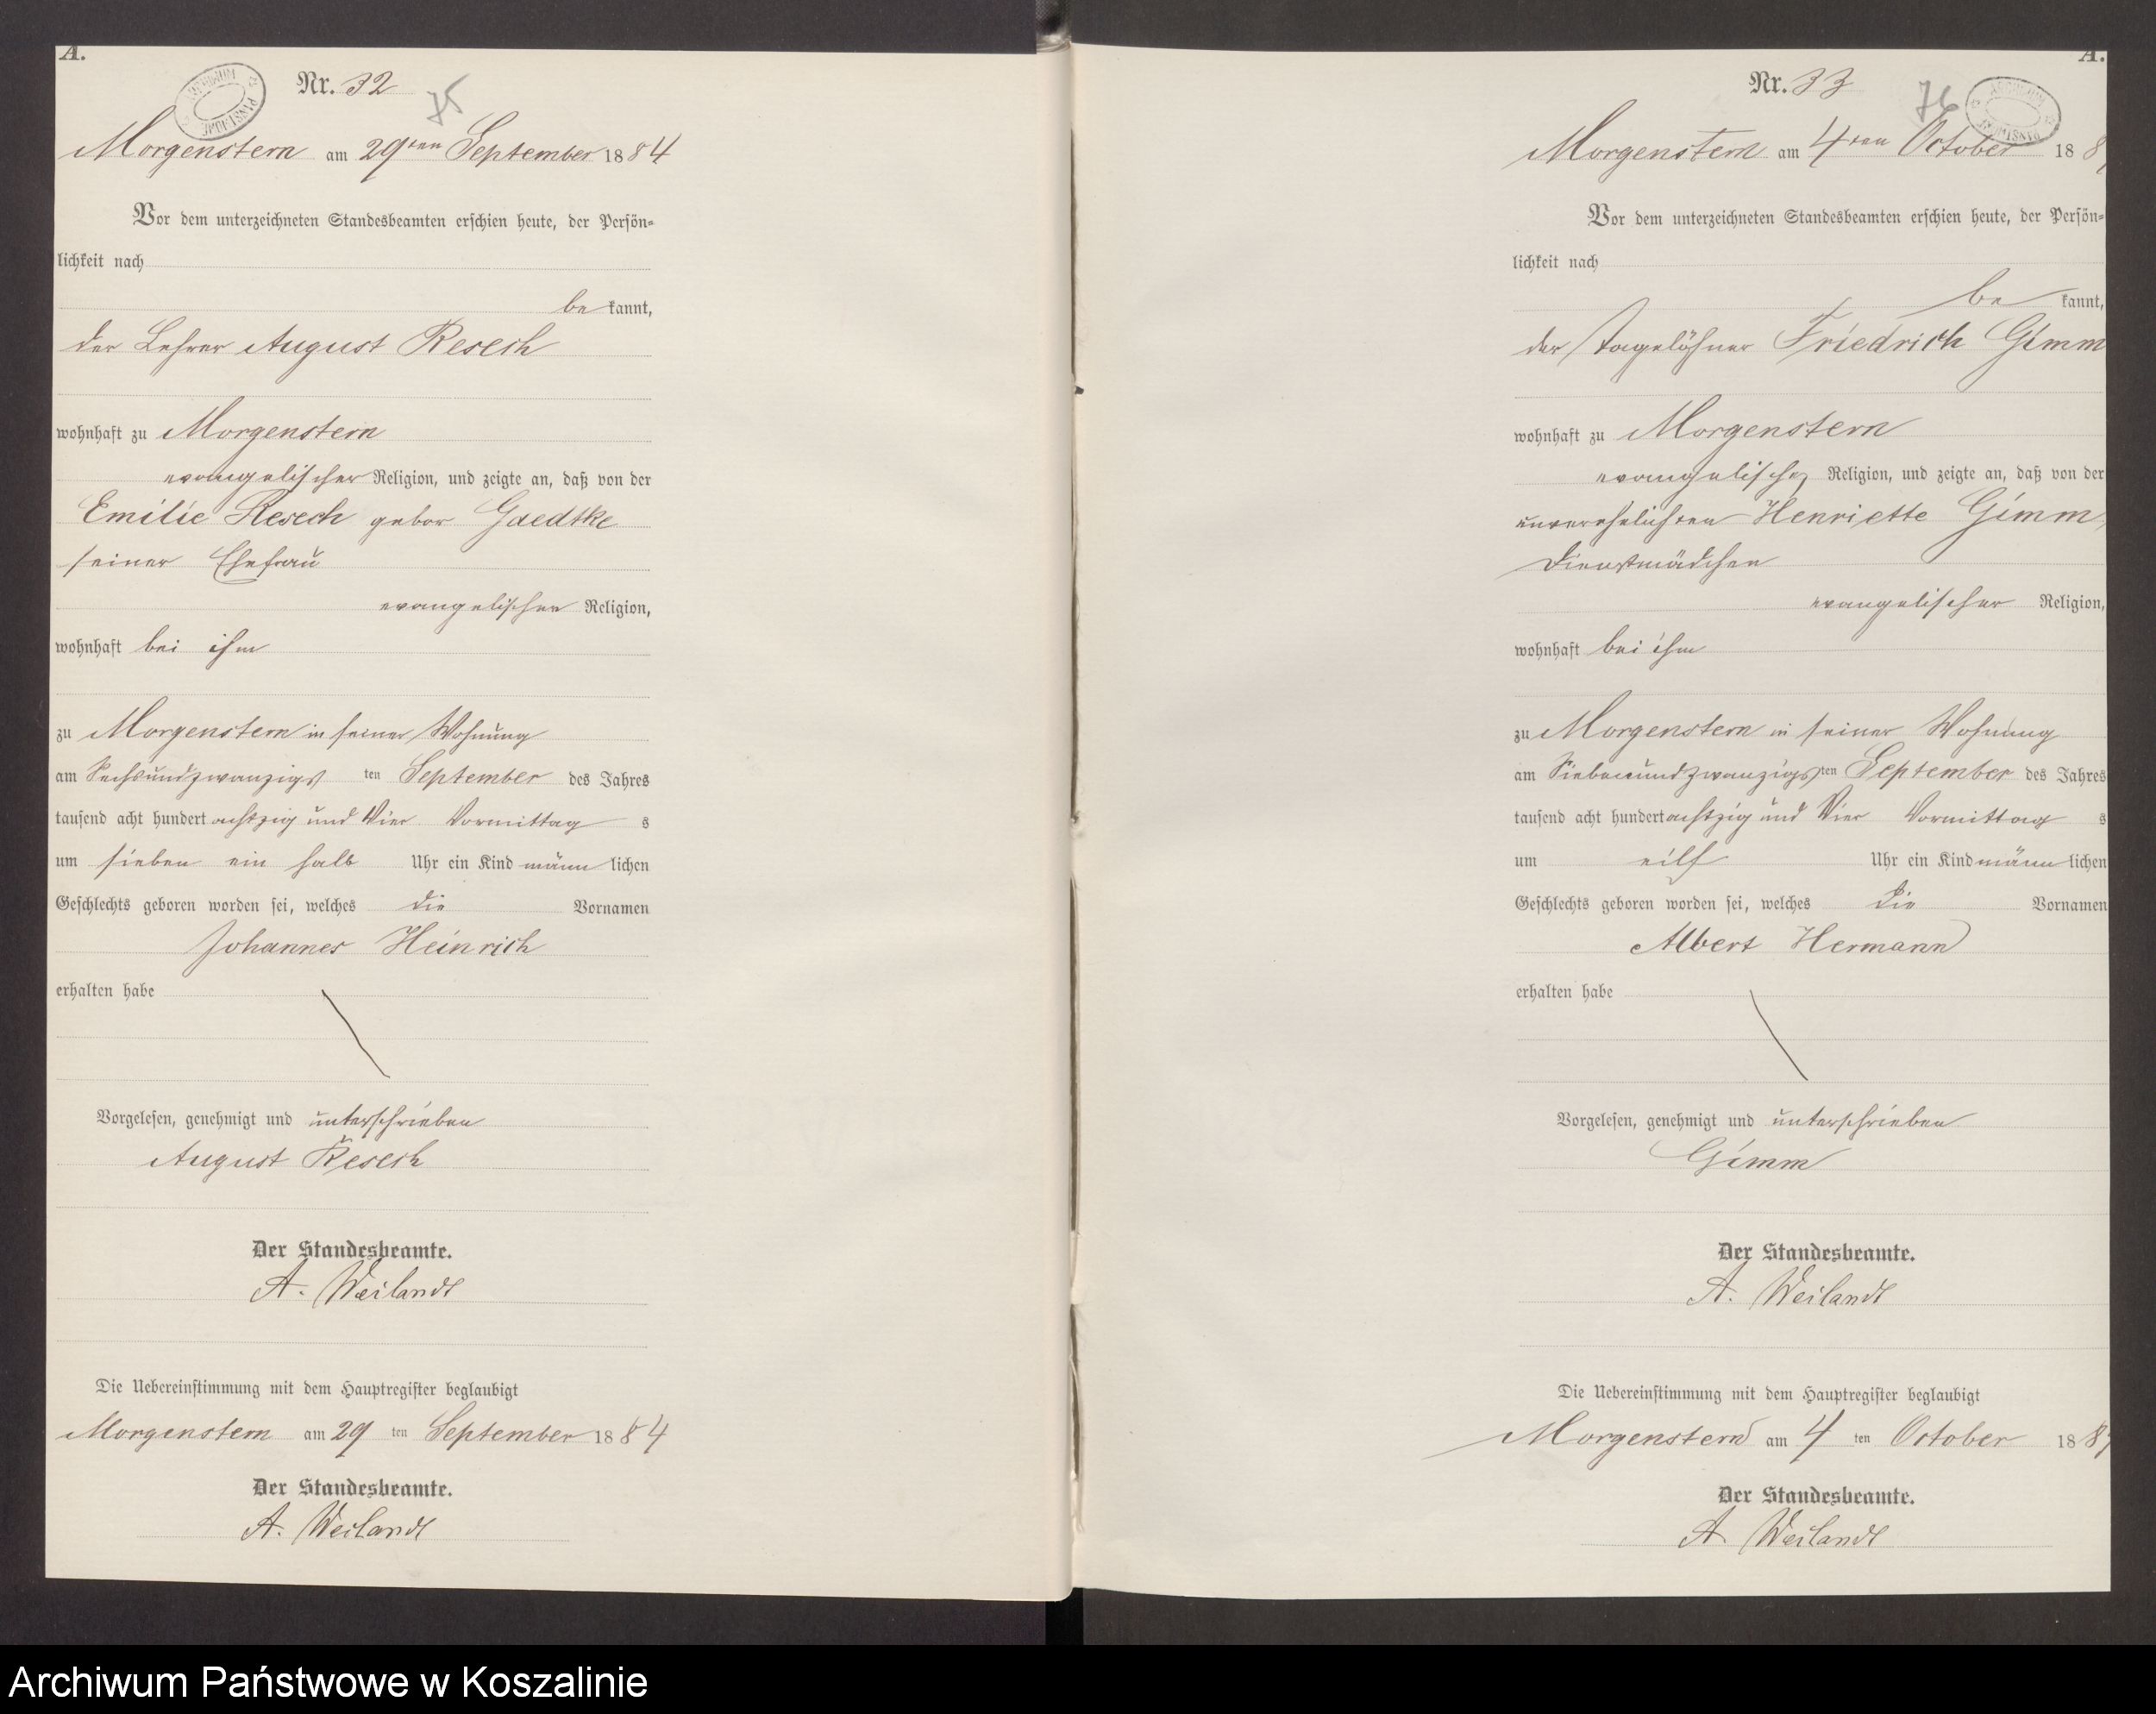 A.
Nr. 32
75
Morgenstern am 29ten September 1884
Vor dem unterzeichneten Standesbeamten erschien heute, der Persön=
lichkeit nach
be kannt,
der Lehrer August Resech
wohnhaft zu Morgenstern
evangelischer Religion, und zeigte an, daß von der
Emilie Resech gebor Gaedtke
seiner Ehefrau
evangelischer Religion,
wohnhaft bei ihm
zu Morgenstern in seiner Wohnung
am Sechsundzwanzigs ten September des Jahres
tausend acht hundert achtzig und Vier Vormittag s
um sieben ein halb Uhr ein Kind männ lichen
Geschlechts geboren worden sei, welches die Vornamen
Johannes Heinrich
erhalten habe
Vorgelesen, genehmigt und unterschrieben
August Resech
Der Standesbeamte.
A. Weilandt
Die Uebereinstimmung mit dem Hauptregister beglaubigt
Morgenstern am 29 ten September 1884
Der Standesbeamte.
A. Weilandt
A.
Nr. 33
76
Morgenstern am 4ten October 188
Vor dem unterzeichneten Standesbeamten erschien heute, der Persön=
lichkeit nach
be kannt,
der Tagelöhner Friedrich Gimm
wohnhaft zu Morgenstern
evangelischer Religion, und zeigte an, daß von der
unverehelichten Henriette Gimm,
Dienstmädchen
evangelischer Religion,
wohnhaft bei ihm
zu Morgenstern in seiner Wohnung
am Siebenundzwanzigs ten September des Jahres
tausend acht hundert achtzig und Vier Vormittag s
um eilf Uhr ein Kind männ lichen
Geschlechts geboren worden sei, welches die Vornamen
Albert Hermann
erhalten habe
Vorgelesen, genehmigt und unterschrieben
Gimm
Der Standesbeamte.
A. Weilandt
Die Uebereinstimmung mit dem Hauptregister beglaubigt
Morgenstern am 4 ten October 188
Der Standesbeamte.
A. Weilandt
Archiwum Państwowe w Koszalinie